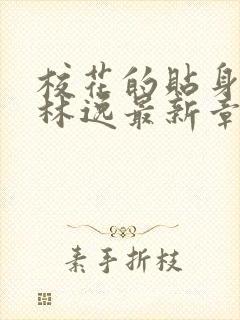 校花的贴身
林逸最新章
素手折枝